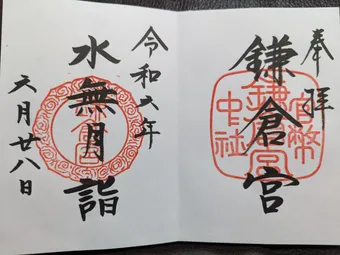 奉拝
鎌倉宮
官幣中社
鎌倉宮
令和六年
水無月詣
六月廿八日